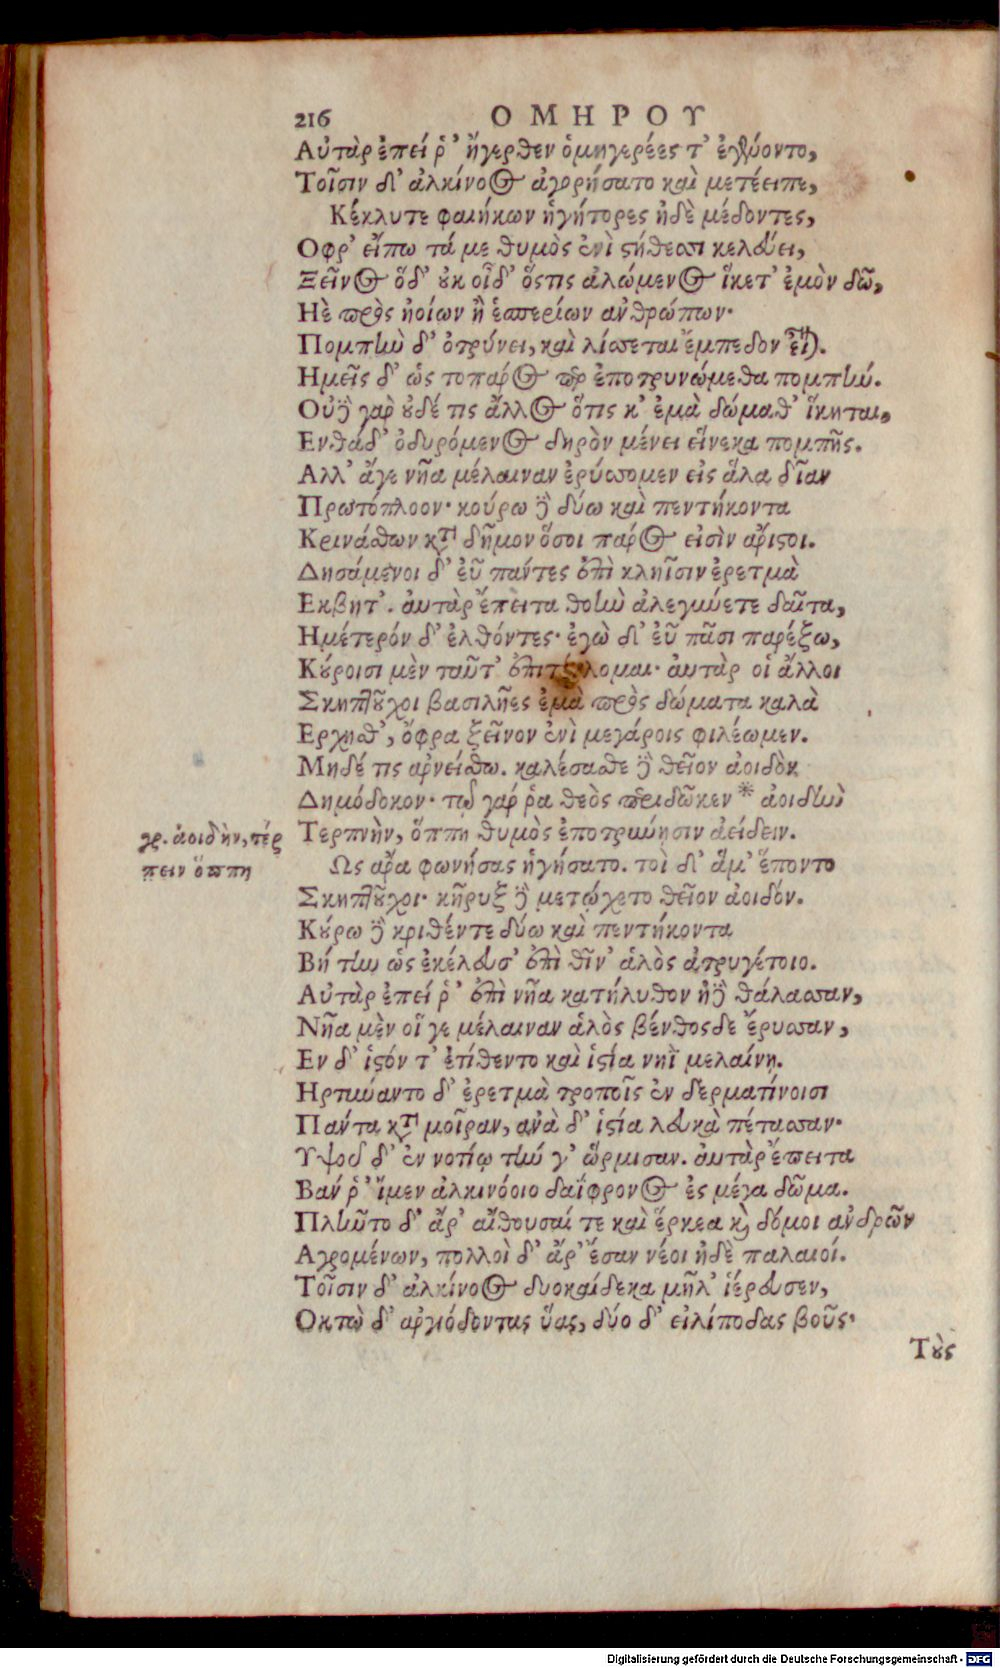 216 ΟΜΗΡΟΥ
Αὐτὰρ ἐπεί ῥ' ἤγερθεν ὁμηγερέες τ' ἐγένοντο,
Τοῖσιν δ' ἀλκίνοος ἀγορήσατο καὶ μετέειπε,
Κέκλυτε φαιήκων ἡγήτορες ἠδὲ μέδοντες,
Οφρ' εἴπω τά με θυμὸς ἐνὶ στήθεσσι κελεύει,
Ξεῖνος ὅδ' οὐκ οἶδ' ὅστις ἀλώμενος ἵκετ' ἐμὸν δῶ,
Ηὲ πρὸς ἠοίων ἢ ἑσπερίων ἀνθρώπων·
Πομπὴν δ' ὀτρύνει, καὶ λίσσεται ἔμπεδον εἶναι.
Ημεῖς δ' ὡς τοπάρος περ ἐποτρυνώμεθα πομπήν.
Οὐδὲ γὰρ οὐδέ τις ἄλλος ὅτις κ' ἐμὰ δώμαθ' ἵκηται,
Ενθάδ' ὀδυρόμενος δηρὸν μένει εἵνεκα πομπῆς.
Αλλ' ἄγε νῆα μέλαιναν ἐρύσσομεν εἰς ἅλα δῖαν
Πρωτόπλοον· κούρω δὲ δύω καὶ πεντήκοντα
Κρινάσθων κατὰ δῆμον ὅσοι πάρος εἰσὶν ἄριστοι.
Δησάμενοι δ' εὖ πάντες ἐπὶ κληῖσιν ἐρετμὰ
Εκβητ'. αὐτὰρ ἔπειτα θοὴν ἀλεγύνετε δαῖτα,
Ημέτερόν δ' ἐλθόντες· ἐγὼ δ' εὖ πᾶσι παρέξω,
Κούροισι μὲν ταῦτ' ἐπιτέλλομαι· αὐτὰρ οἱ ἄλλοι
Σκηπτοῦχοι βασιλῆες ἐμὰ πρὸς δώματα καλὰ
Ερχηθ', ὄφρα ξεῖνον ἐνὶ μεγάροις φιλέωμεν.
Μηδέ τις ἀρνείσθω. καλέσασθε δὲ θεῖον ἀοιδὸν
Δημόδοκον· τῷ γάρ ῥα θεὸς περιδῶκεν * ἀοιδὴν
Τερπνὴν, ὅππη θυμὸς ἐποτρύνησιν ἀείδειν.
γρ. ἀοιδὴν, τέρ
πειν ὅππη
Ως ἄρα φωνήσας ἡγήσατο. τοὶ δ' ἅμ' ἕποντο
Σκηπτοῦχοι· κῆρυξ δὲ μετῴχετο θεῖον ἀοιδόν.
Κούρω δὲ κριθέντε δύω καὶ πεντήκοντα
Βή την ὡς ἐκέλευσ' ἐπὶ θῖν' ἁλὸς ἀτρυγέτοιο.
Αὐτὰρ ἐπεί ῥ' ἐπὶ νῆα κατήλυθον ἠδὲ θάλασσαν,
Νῆα μὲν οἵ γε μέλαιναν ἁλὸς βένθοσδε ἔρυσσαν,
Εν δ' ἱστόν τ' ἐτίθεντο καὶ ἱστία νηῒ μελαίνῃ.
Ηρτύναντο δ' ἐρετμὰ τροποῖς ἐν δερματίνοισι
Πάντα κατὰ μοῖραν, ἀνὰ δ' ἱστία λευκὰ πέτασσαν·
Υψοῦ δ' ἐν νοτίῳ τήν γ' ὥρμισαν. αὐτὰρ ἔπειτα
Βάν ῥ' ἴμεν ἀλκινόοιο δαΐφρονος ἐς μέγα δῶμα.
Πλῆντο δ' ἄρ' αἴθουσαί τε καὶ ἕρκεα καὶ δόμοι ἀνδρῶν
Αγρομένων, πολλοὶ δ' ἄρ' ἔσαν νέοι ἠδὲ παλαιοί.
Τοῖσιν δ' ἀλκίνοος δυοκαίδεκα μῆλ' ἱέρευσεν,
Οκτὼ δ' ἀργιόδοντας ὕας, δύο δ' εἰλίποδας βοῦς·
Τοὺς
Digitalisierung gefördert durch die Deutsche Forschungsgemeinschaft - DFG